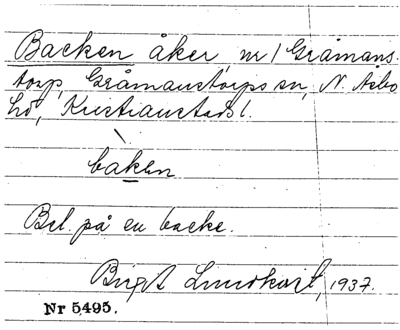 Backen åker, nr 1 Gråmans-
torp, Gråmanstorps sn, N. Åsbo
hd, Kristianstads l.
baken
Bel. på en backe.
Birgit Lundkvist, 1937.
Nr 5495.